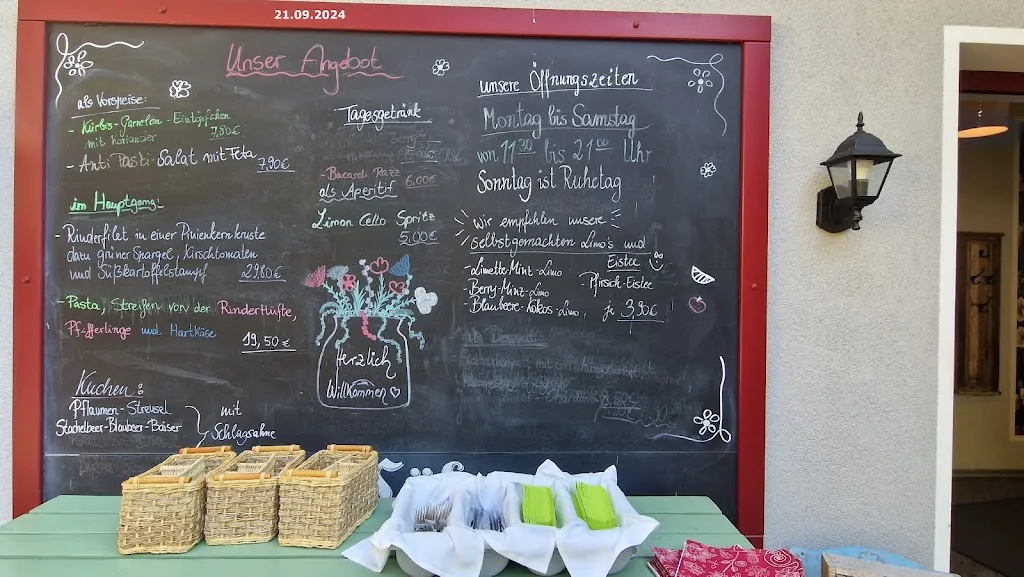 21.09.2024
Unser Angebot
als Vorspeise:
- Kürbis-Garnelen-Eintöpfchen
mit Koriander 7,80€
- Anti Pasti-Salat mit Feta 7,90€
im Hauptgang:
- Rinderfilet in einer Pinienkernkruste
dazu grüner Spargel, Kirschtomaten
und Süßkartoffelstampf 29,80€
- Pasta, Streifen von der Rinderhüfte,
Pfifferlinge und Hartkäse
19,50€
Kuchen:
Pflaumen-Streusel
Stachelbeer-Blaubeer-Baiser
mit
Schlagsahne
Tagesgetränk
- Bacardi Razz 6,00€
als Aperitif
Limon Cello Spritz
5,00€
Herzlich
Willkommen
unsere Öffnungszeiten
Montag bis Samstag
von 11 30 bis 21 00 Uhr
Sonntag ist Ruhetag
Wir empfehlen unsere
selbstgemachten Limo's und
Eistee
- Limette-Minz-Limo
- Pfirsich-Eistee
- Berry-Minz-Limo
- Blaubeere-Kokos-Limo, je 3,90€